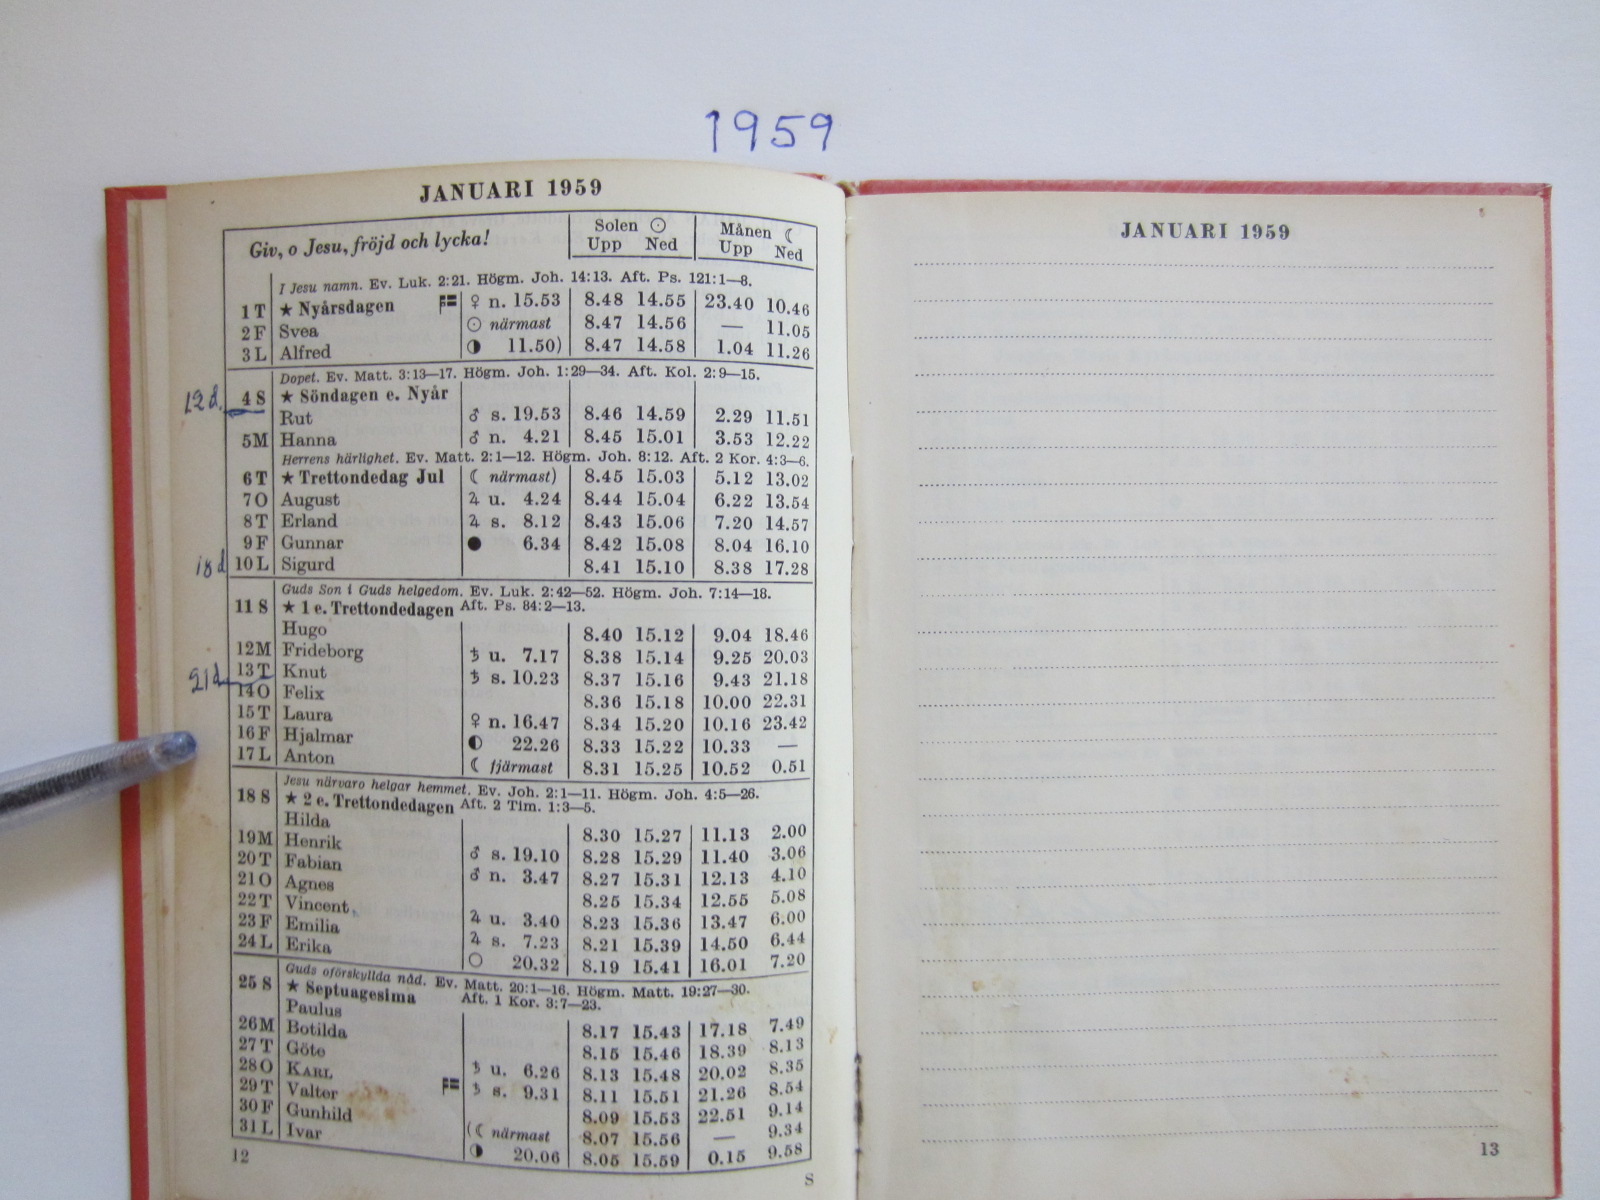 1959
JANUARI 1959
Giv, o Jesu, fröjd och lycka! Solen ☉ Upp Ned Månen ☾ Upp Ned
I Jesu namn. Ev. Luk. 2:21. Högm. Joh. 14:13. Aft. Ps. 121:1—8.
1 T ★ Nyårsdagen ♀ n. 15.53 8.48 14.55 23.40 10.46
2 F Svea ☉ närmast 8.47 14.56 — 11.05
3 L Alfred ◑ 11.50) 8.47 14.58 1.04 11.26
Dopet. Ev. Matt. 3:13—17. Högm. Joh. 1:29—34. Aft. Kol. 2:9—15.
12d. 4 S ★ Söndagen e. Nyår
Rut ♂ s. 19.53 8.46 14.59 2.29 11.51
5 M Hanna ♂ n. 4.21 8.45 15.01 3.53 12.22
Herrens härlighet. Ev. Matt. 2:1—12. Högm. Joh. 8:12. Aft. 2 Kor. 4:3—6.
6 T ★ Trettondedag Jul ☾ närmast) 8.45 15.03 5.12 13.02
7 O August ♃ u. 4.24 8.44 15.04 6.22 13.54
8 T Erland ♃ s. 8.12 8.43 15.06 7.20 14.57
9 F Gunnar ● 6.34 8.42 15.08 8.04 16.10
18d 10 L Sigurd 8.41 15.10 8.38 17.28
Guds Son i Guds helgedom. Ev. Luk. 2:42—52. Högm. Joh. 7:14—18.
11 S ★ 1 e. Trettondedagen Aft. Ps. 84:2—13.
Hugo 8.40 15.12 9.04 18.46
12 M Frideborg ♄ u. 7.17 8.38 15.14 9.25 20.03
21d 13 T Knut ♄ s. 10.23 8.37 15.16 9.43 21.18
14 O Felix 8.36 15.18 10.00 22.31
15 T Laura ♀ n. 16.47 8.34 15.20 10.16 23.42
16 F Hjalmar ◐ 22.26 8.33 15.22 10.33 —
17 L Anton ☾ fjärmast 8.31 15.25 10.52 0.51
Jesu närvaro helgar hemmet. Ev. Joh. 2:1—11. Högm. Joh. 4:5—26.
18 S ★ 2 e. Trettondedagen Aft. 2 Tim. 1:3—5.
Hilda 8.30 15.27 11.13 2.00
19 M Henrik ♂ s. 19.10 8.28 15.29 11.40 3.06
20 T Fabian ♂ n. 3.47 8.27 15.31 12.13 4.10
21 O Agnes 8.25 15.34 12.55 5.08
22 T Vincent ♃ u. 3.40 8.23 15.36 13.47 6.00
23 F Emilia ♃ s. 7.23 8.21 15.39 14.50 6.44
24 L Erika ○ 20.32 8.19 15.41 16.01 7.20
Guds oförskyllda nåd. Ev. Matt. 20:1—16. Högm. Matt. 19:27—30.
25 S ★ Septuagesima Aft. 1 Kor. 3:7—23.
Paulus 8.17 15.43 17.18 7.49
26 M Botilda 8.15 15.46 18.39 8.13
27 T Göte ♄ u. 6.26 8.13 15.48 20.02 8.35
28 O KARL ♄ s. 9.31 8.11 15.51 21.26 8.54
29 T Valter 8.09 15.53 22.51 9.14
30 F Gunhild (☾ närmast 8.07 15.56 — 9.34
31 L Ivar ◑ 20.06 8.05 15.59 0.15 9.58
12
S
JANUARI 1959
13